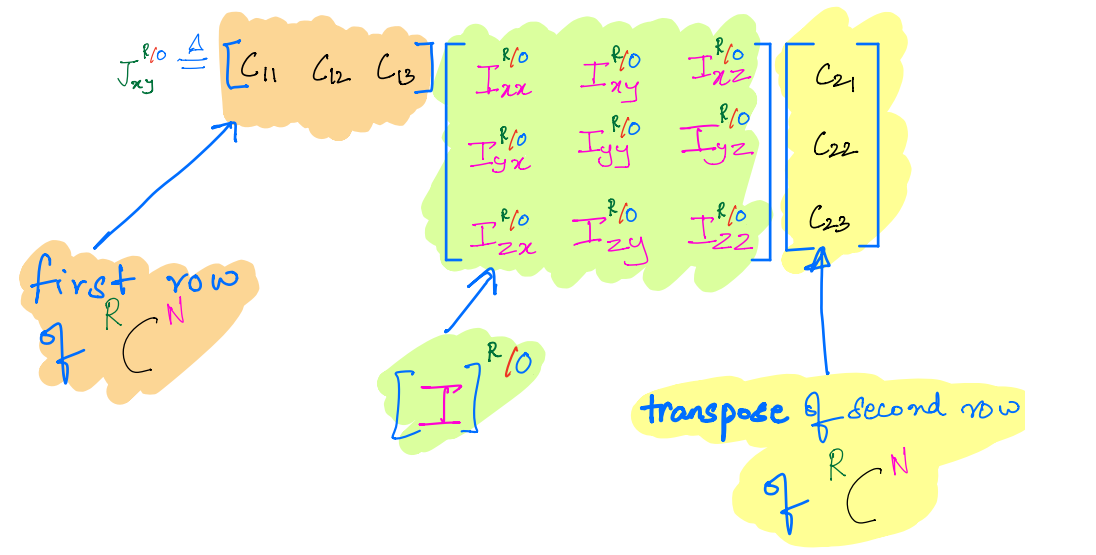 J_xy^R/O ≜ [C11 C12 C13] [I_xx^R/O I_xy^R/O I_xz^R/O] [C21]
[I_yx^R/O I_yy^R/O I_yz^R/O] [C22]
[I_zx^R/O I_zy^R/O I_zz^R/O] [C23]
first row
of R C N
[I] R/O
transpose of second row
of R C N